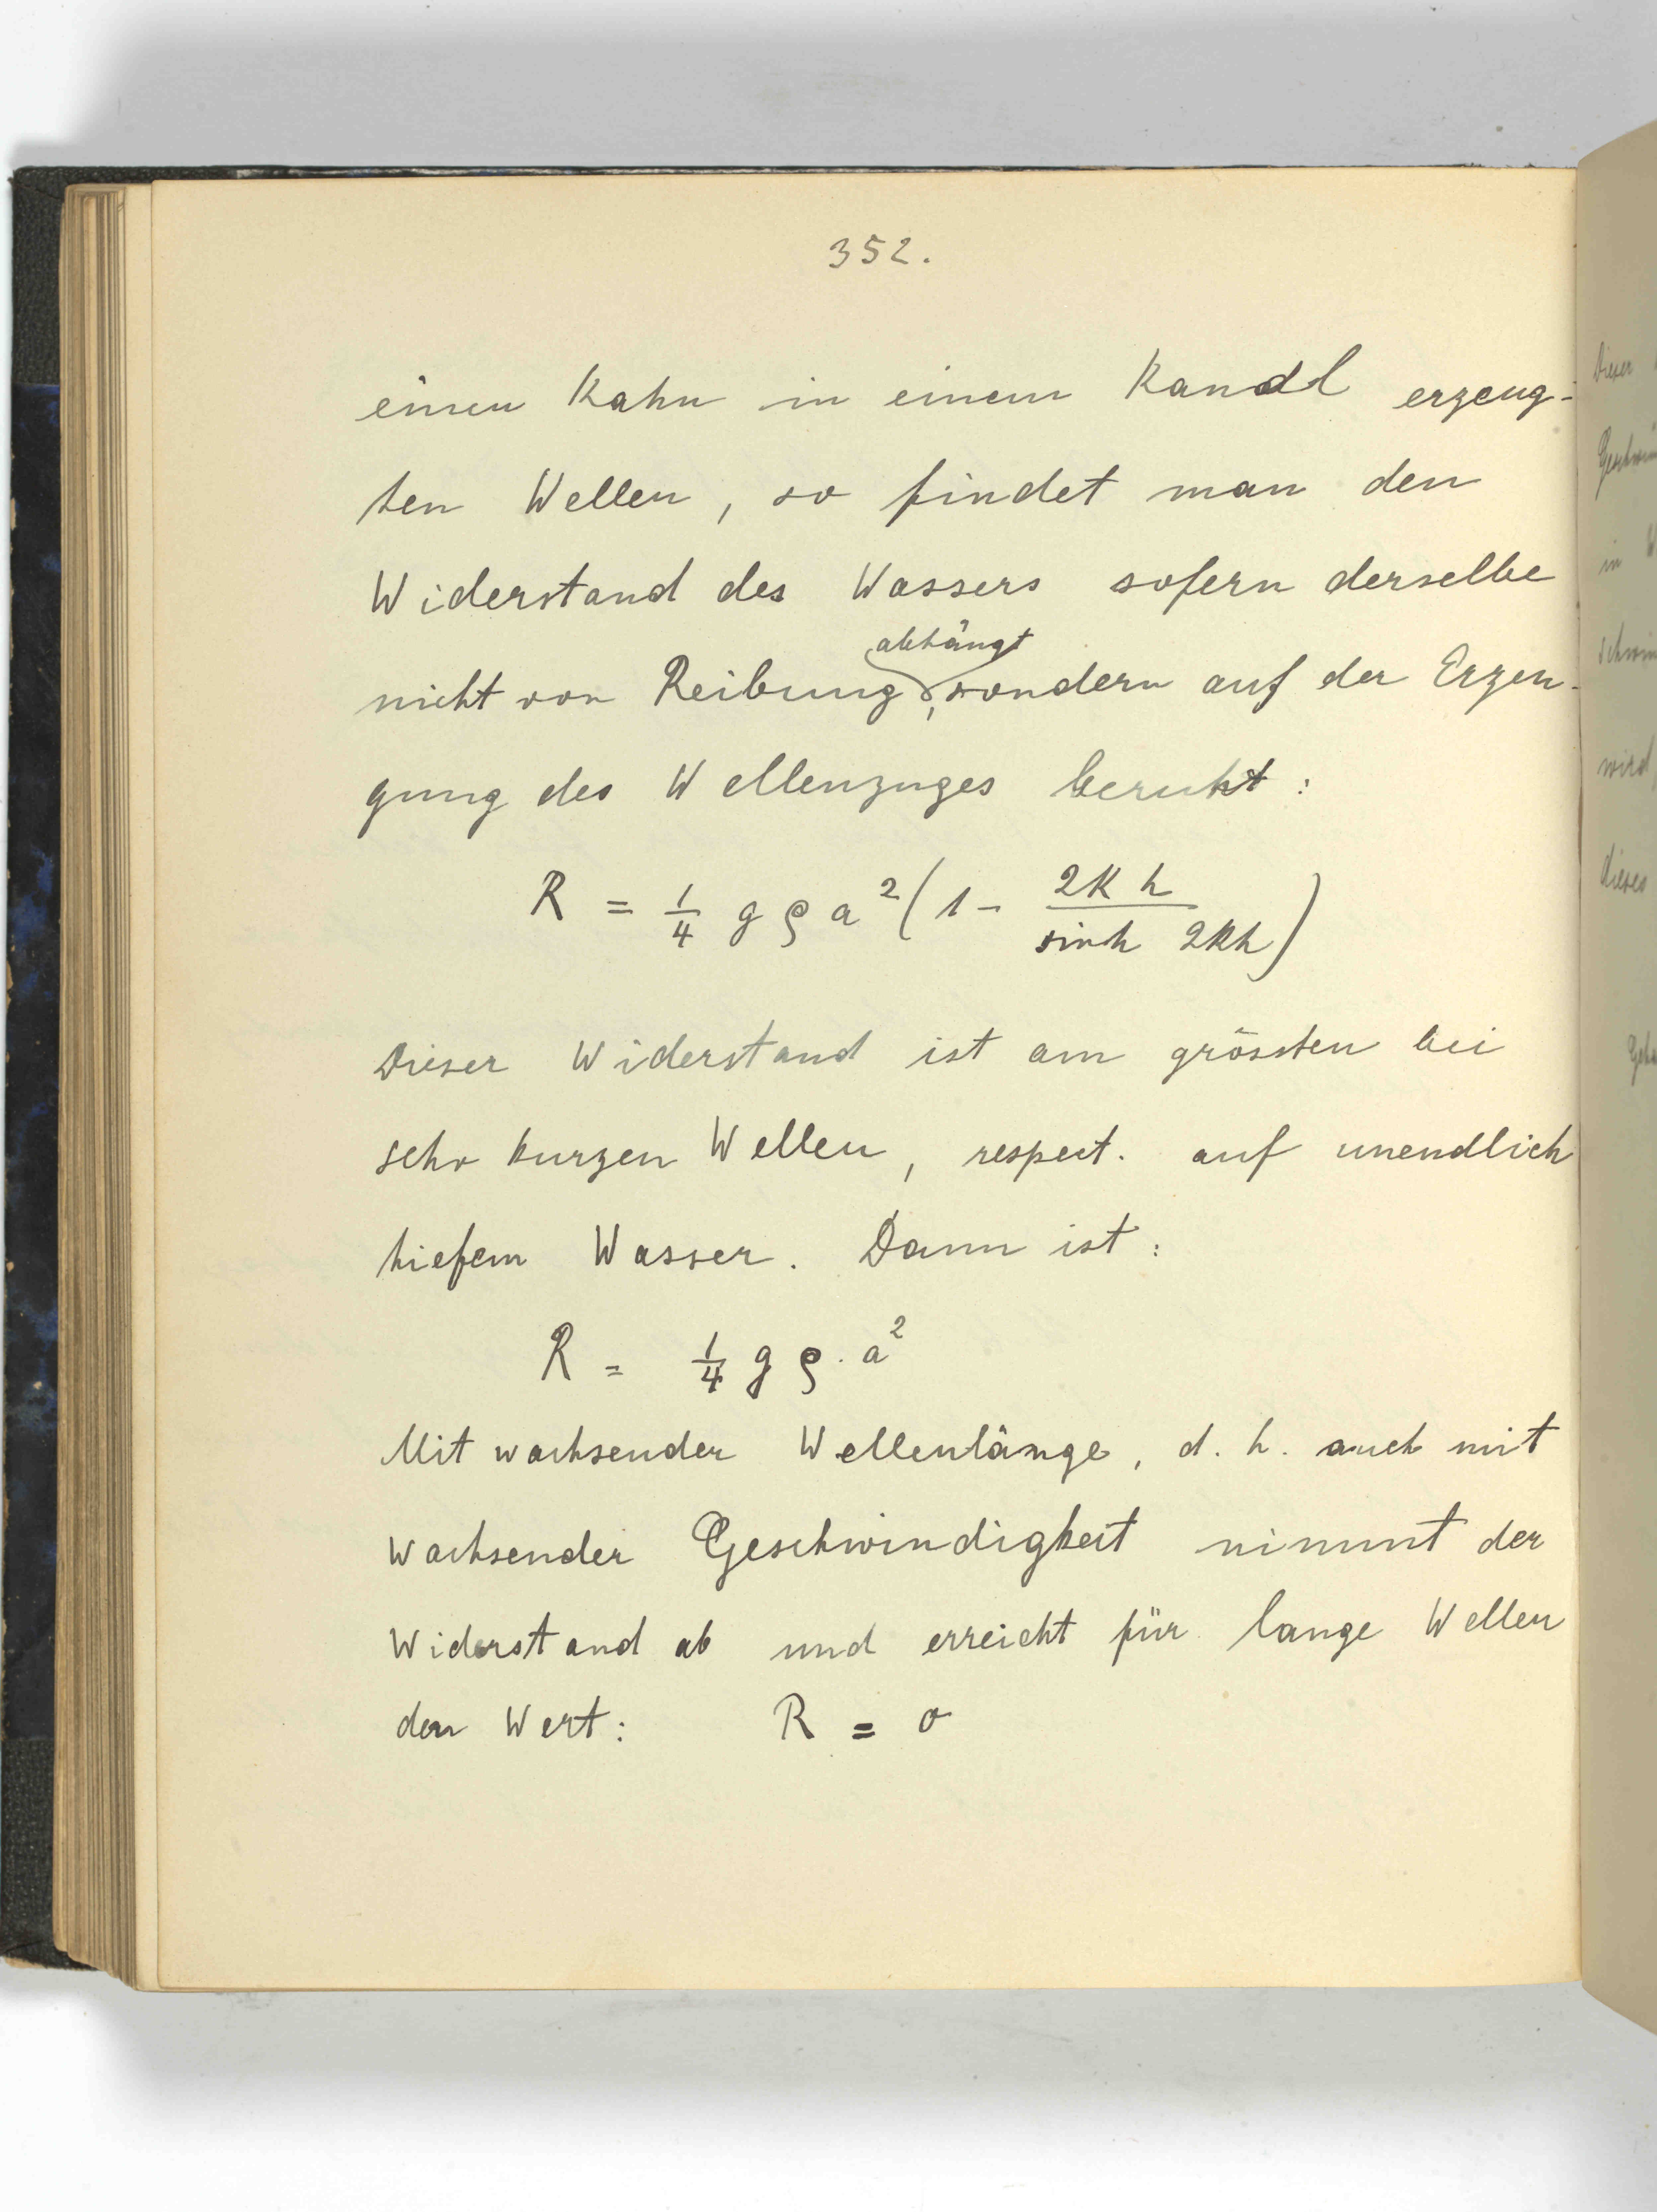 352.
einen Kahn in einem Kanal erzeug-
ten Wellen, so findet man den
Widerstand des Wassers sofern derselbe
abhängt
nicht von Reibung, sondern auf der Erzeu-
gung des Wellenzuges beruht:
R = 1/4 g ρ a² (1 - 2kh / sinh 2kh)
Dieser Widerstand ist am grössten bei
sehr kurzen Wellen, respect. auf unendlich
tiefem Wasser. Dann ist:
R = 1/4 g ρ · a²
Mit wachsender Wellenlänge, d. h. auch mit
wachsender Geschwindigkeit nimmt der
Widerstand ab und erreicht für lange Wellen
den Wert: R = 0
Dieser
in
wird
dieses